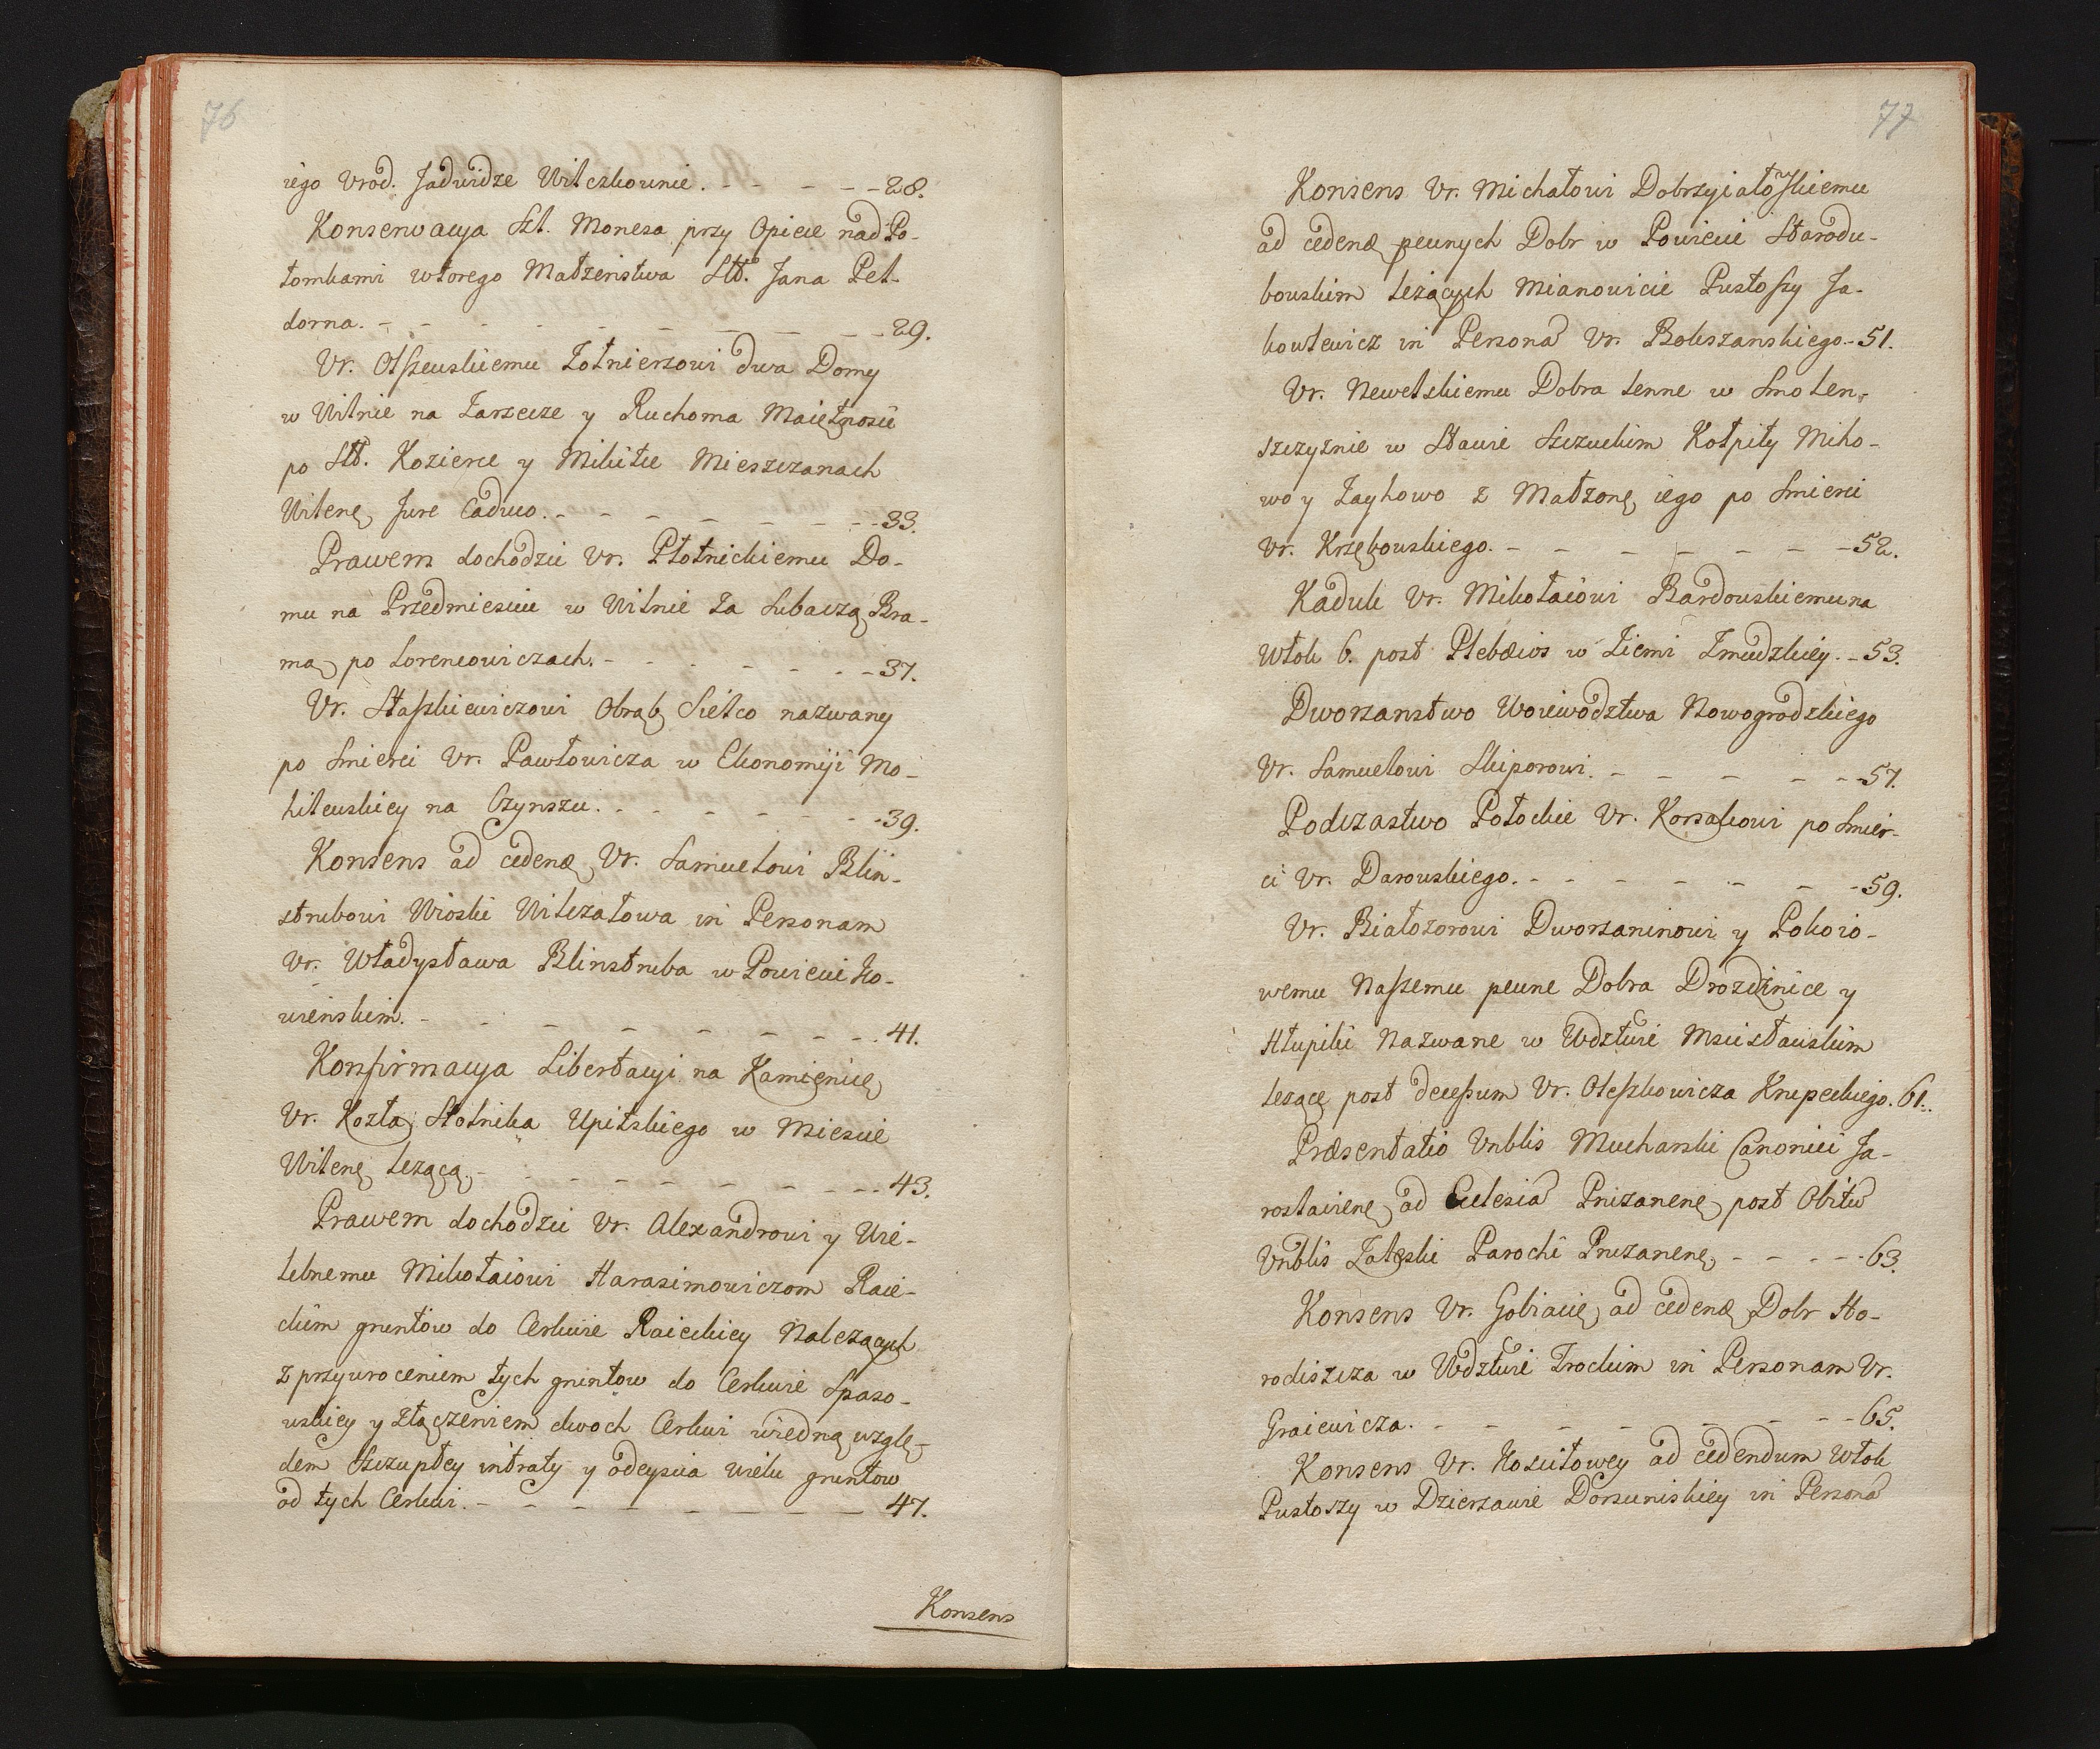 76
iego Vrod. Jadwidze Wilczkownie. - - - - - 28.
Konserwacya Szl. Monesa przy Opiece nad Po-
tomkami wtorego Małzenstwa Sltt. Jana Pel-
dorna. - - - - - - - - - 29.
Vr. Olszewskiemu Zołnierzowi dwa Domy
w Wilnie na Zarzecze y Ruchoma Maiętnosc
po Sltt. Kozierce y Mikitce Mieszczanach
Wilenę Jure Caduco. - - - - - - - 33.
Prawem dochodzic Vr. Płotnickiemu Do-
mu na Przedmiesciu w Wilnie Za Subaczą Bra-
mą po Lorencowiczach. - - - - - - 37.
Vr. Staszkiewiczowi Obrąb Sielco nazwany
po Smierci Vr. Pawłowicza w Ekonomiji Mo-
hilewskiey na Czynszu. - - - - - - 39.
Konsens ad cedenđ Vr. Samuelowi Blin-
strubowi Wioski Wilczatowa in Personam
Vr. Władysława Blinstruba w Powiecie Ko-
wienskim. - - - - - - - - 41.
Konfirmacya Libertacyi na Kamięnicę
Vr. Kozła Stolnika Upitskiego w Miescie
Wilenę lezącą. - - - - - - - - 43.
Prawem dochodzic Vr. Alexandrowi y Wie-
lebnemu Mikołaiowi Harasimowiczom Raie-
ckim gruntow do Cerkwie Raieckiey Nalezących
z przywroceniem tych gruntow do Cerkwie Spaso-
wskiey y Złączeniem dwoch Cerkwi wiedną wzglę-
dem Szczupłey intraty y odeyscia wielu gruntow
od tych Cerkwi. - - - - - - - - 47.
Konsens
77
Konsens Vr. Michałowi Dobrzyiałowskiemu
ad cedenđ pewnych Dobr w Powiecie Starodu-
bowskim leżących Mianowicie Pustoszy Ja-
kowlewicz in Personã Vr. Bokszanskiego. - 51.
Vr. Newelskiemu Dobra lenne w Smolen-
szczyznie w Stanie Szczuckim Kołpity Miko-
wo y Zaykowo z Małzoną iego po Smierci
Vr. Krzębowskiego. - - - - - - - 52.
Kaduk Vr. Mikołaiowi Bardowskiemu na
Włok 6. post Plebæios w Ziemi Zmudzkiey. - 53.
Dworzanstwo Woiewodztwa Nowogrodzkiego
Vr. Samuelowi Skiporowi. - - - - - 57.
Podczastwo Połockie Vr. Korsakowi po Smier-
ci Vr. Darowskiego. - - - - - - - 59.
Vr. Białozorowi Dworzaninowi y Pokoio-
wemu Naszemu pewne Dobra Drozdzinice y
Hłupiki Nazwane w Wdztwie Mscisławskim
lezące post decessum Vr. Oleszkowicza Krupeckiego. 61.
Præsentatio Vnblis Mucharski Canonici Ja-
roslavienę ad Ecclesiã Pnizanenę post Obitũ
Vnblis Zaleski Parochi Pnizanenę - - - - 63.
Konsens Vr. Gobiacię ad cedenđ Dobr Ho-
rodiszcza w Wdztwie Trockim in Personam Vr.
Graiewicza. - - - - - - - - 65.
Konsens Vr. Kosciłowey ad cedendum Włok
Pustoszy w Dzierzawie Dorsuniskiey in Personã